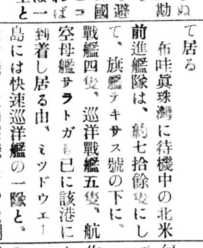 て居る
布哇眞珠灣に待機中の北米
前進艦隊は、約七拾餘隻にし
て、旗艦テキサス號の下に、
戰艦四隻、巡洋戰艦五隻、航
空母艦サラトガも已に該港に
到着し居る由、ミツドウエー
島には快速巡洋艦の一隊と。